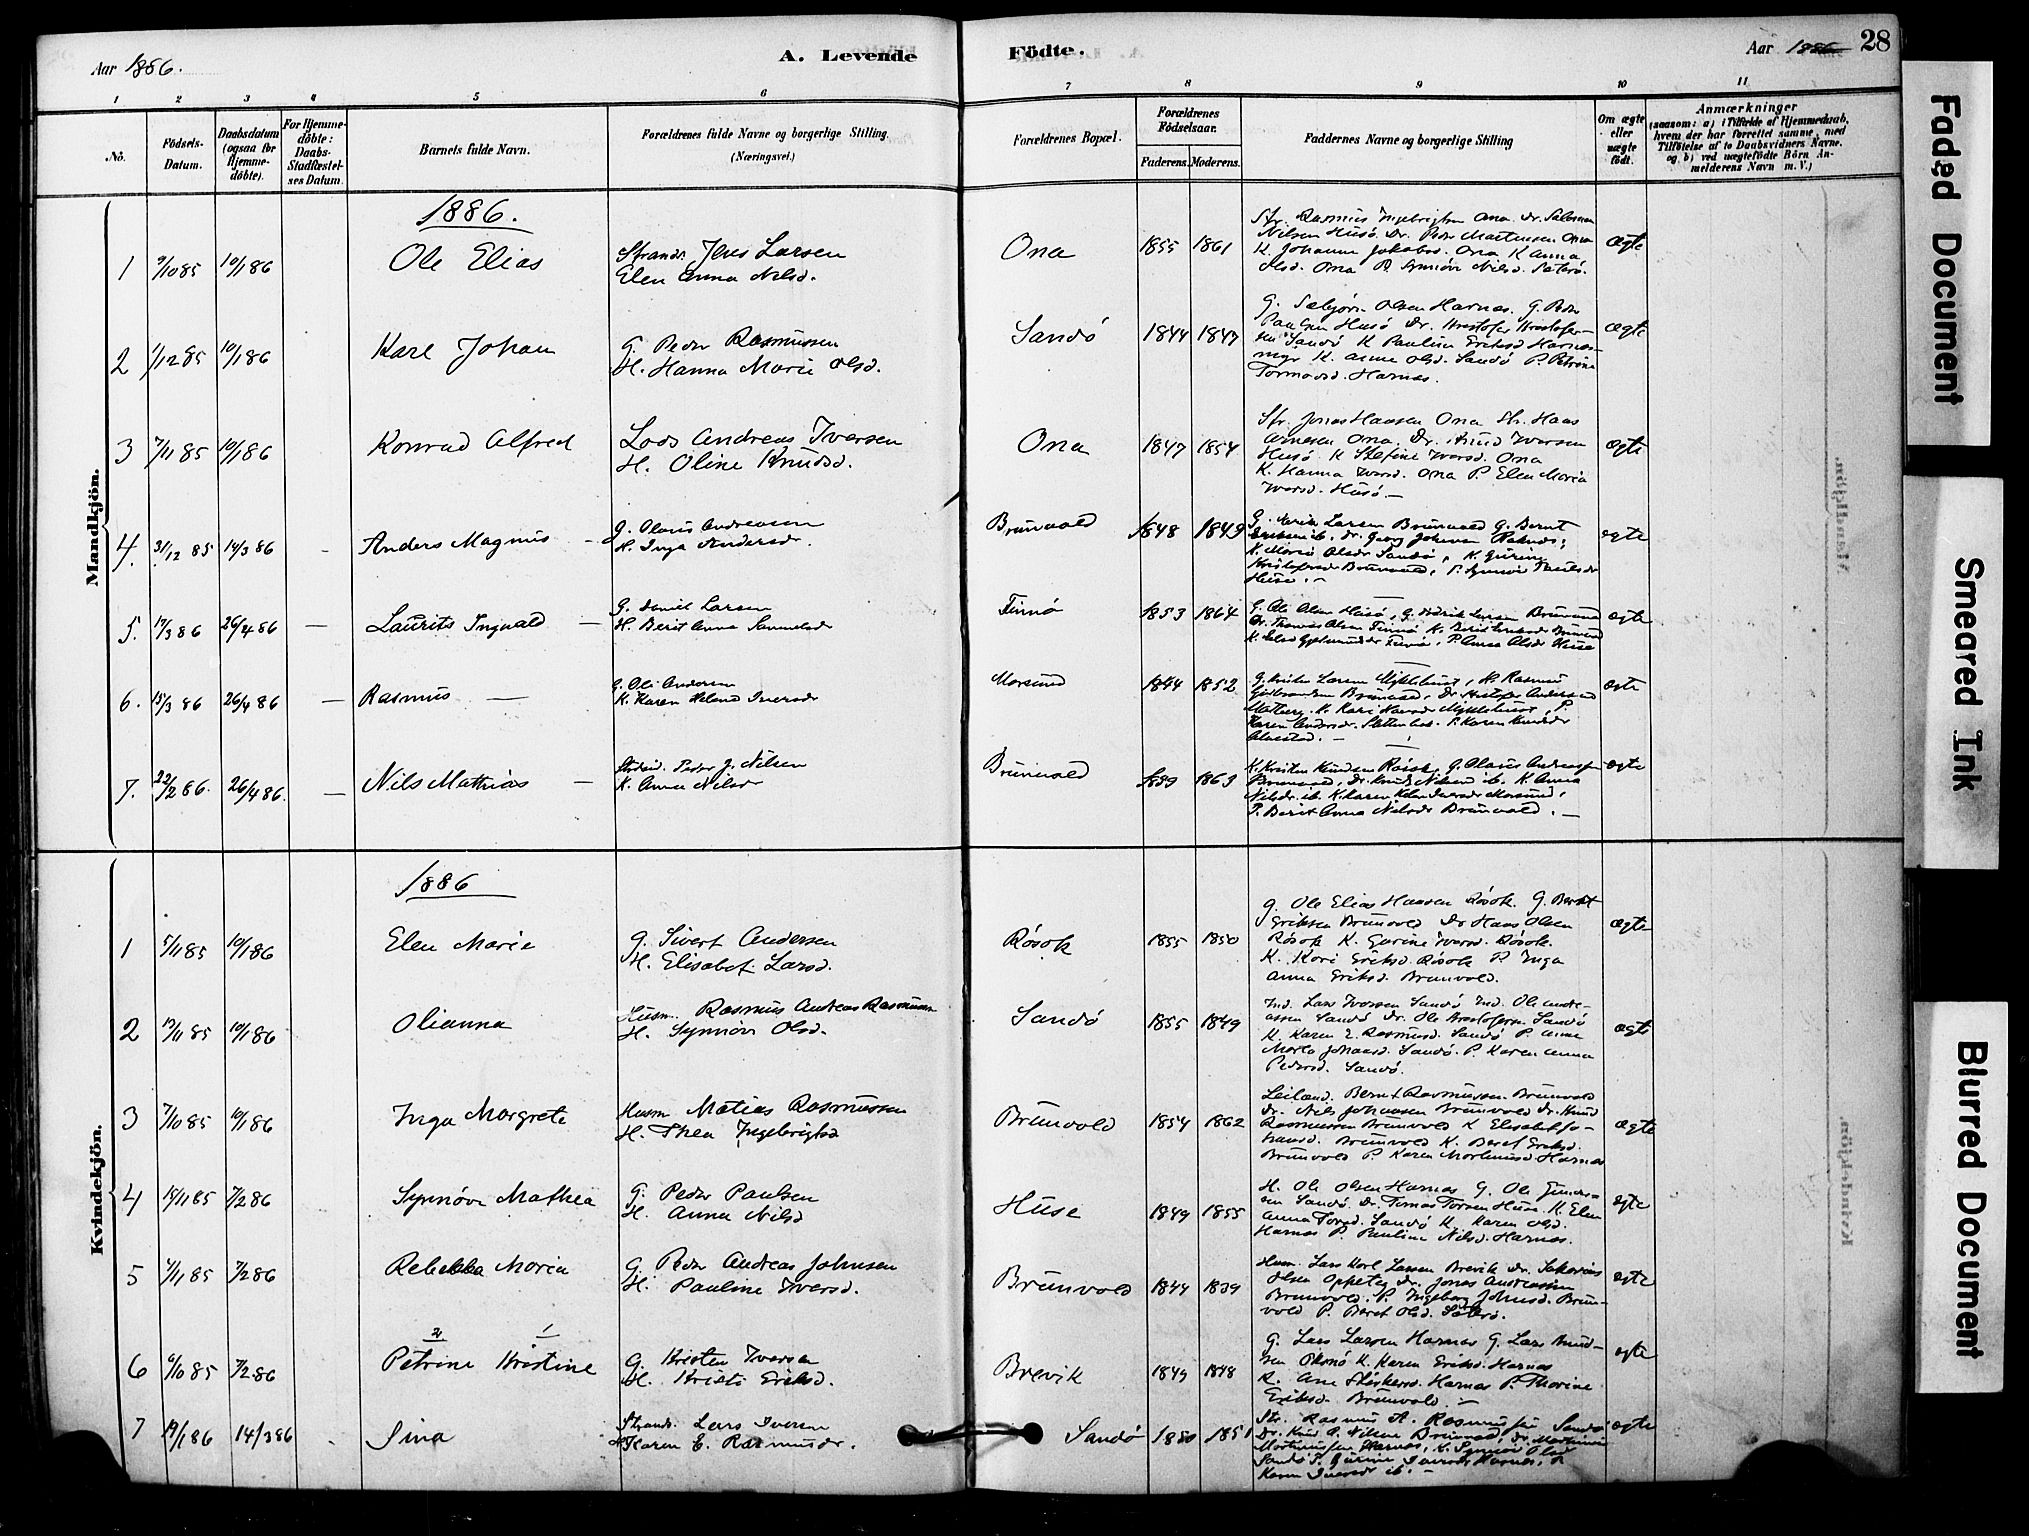 Aar 1886.
A. Levende
Födte.
Aar 1886
28
1 2 3 4 5 6 7 8 9 10 11
No.
Födsels-
Datum.
Daabsdatum
(ogsaa for
Hjemme-
döbte).
For Hjemme-
döbte:
Daabs-
Stadfæstel-
ses Datum.
Barnets fulde Navn.
Forældrenes fulde Navne og borgerlige Stilling.
(Næringsvei.)
Forældrenes Bopæl.
Forældrenes
Födselsaar.
Faderens. Moderens.
Faddernes Navne og borgerlige Stilling
Om ægte
eller
uægte
födt.
Anmærkninger
(saasom: a) i Tilfælde af Hjemmedaab,
hvem der har forrettet samme, med
Tilföielse af to Daabsvidners Navne.
og b) ved uægtefödte Börn An-
melderens Navn m. V.)
Mandkjön.
1886.
1 9/10 85 10/1 86 Ole Elias
Strands. Jens Larsen
Elen Anna Nilsd.
Ona 1855 1861
Str. Rasmus Ingebrigtsen Ona. Dr. Salomon
Nilsen Husö. Dr. Peder Martinsen Ona
K. Johanna Jakobsd. Ona K Anna
Olsd. Ona P. Synnöv Nilsd. Säterö.
ægte
2 1/12 85 10/1 86 Karl Johan
G. Peder Rasmussen
H. Hanna Marie Olsd.
Sandö 1844 1847
G. Sæbjörn Olsen Harnas. G. Peder
Paulsen Husö Dr. Kristofer Kristofer-
sen Sandö K Paulina Eriksd Harnas-
myr K. Anne Olsd. Sandö P. Petrine
Tormodsd. Harnas.
ægte
3 7/11 85 10/1 86 Konrad Alfred
Lods Andreas Iversen
H. Oline Knudsd.
Ona 1847 1854
Str. Jonas Hansen Ona Str. Hans
Arnesen Ona. Dr. Knud Iversen
Husö K Stefine Iversd. Ona
K. Hanna Iversd. Ona P. Elen Maria
Iversd. Husö. —
ægte
4. 31/12 85 14/3 86 - Anders Magnus -
G. Olaus Andreassen
H. Inga Andersdr.
Brunvold 1848 1849
Larsen Brunvold G. Bernt
Eriksen ib. Dr. Georg Johnsen
K. Marie Olsdr Sandö, K. Gurine
Kristofersdr Brunvold, P. Synnöv
Huse. —
egte
5. 17/3 86 26/4 86 — Laurits Ingvald —
G. Daniel Larsen
H. Berit Anna Samuelsdr
Finnö 1853 1864
G. Ole Olsen Husö, G. Larsen Brunvold
Dr. Thomas Olsen Finnö K. Berit Eriksdr Brunvold
K. Finnö, P. Anna Olsdr Huse
egte
6. 15/3 86 26/4 86 — Rasmus —
G. Ole Andersen
K. Karen Helene Iversdr
Morsund 1844 1852
G. Kristen Larsen Myklebust, K. Rasmus
Gudbrandsen Brunvold, Dr. Kristofer Andersen
K. Kari Myklebust, P.
Karen Andersdr. P. Karen Knudsdr
—
ægte
7. 22/2 86. 26/4 86. — Nils Mathias —
Strands. Peder J. Nilsen
K. Anna Nilsdr
Brunvold 1859 1863
K. Kristen Knudsen Rösok, G. Olaus Andreassen
Brunvold, Dr. Knud Nilsen ib. K. Anna
Nilsdr. ib. K. Karen Helene Iversdr Morsund,
P. Berit Anna Nilsdr Brunvold. —
egte
Kvindekjön.
1886
1 5/11 85 10/1 86 Elen Marie
G. Sivert Andersen
H. Elisabet Larsd.
Rösok 1855 1850
G. Ole Elias Hansen Rösok. G. Bernt
Eriksen Brunvold Dr Hans Olsen
Rösok K. Gurine Iversd. Rösok.
K. Kari Eriksd. Rösok P. Inga
Anna Eriksd. Brunvold.
ægte
2 13/11 85 10/1 86 Olianna
Husm. Rasmus Andreas Rasmussen
H. Synnöv Olsd.
Sandö 1855 1849
Ind. Lars Iversen Sandö Ind. Ole Andre-
assen Sandö Dr. Ole Kristofersen Sandö
K. Karen E. Rasmusd. Sandö P. Anne
Marta Johansd. Sandö. P. Karen Anna
Pedersd. Sandö.
ægte
3 7/10 85 10/1 86 Inga Margrete
Husm Matias Rasmussen
H. Thea Ingebrigtsd
Brunvold 1854 1862
Leiland. Bernt Rasmussen Brunvold
Dr. Nils Johansen Brunvold Dr. Knud
Rasmussen Brunvold K Elisabet Jo-
hansd. Brunvold K. Beret Eriksd.
Brunvold P. Karen Martinusd. Harnas
ægte
4 15/11 85 7/2 86 Synnöve Mathea
G. Peder Paulsen
H. Anna Nilsd
Huse 1849 1855
H. Ole Olsen Harnas G. Ole Gunder-
sen Sandö Dr. Tomas Torsen Huse. K. Elen
Anna Torsd. Sandö K. Karen Olsd.
Harnas P. Pauline Nilsd. Harnas.
egte
5 4/11 85 7/2 86 Rebekka Maria
G. Peder Andreas Johnsen
H. Pauline Iversd.
Brunvold 1844 1839
Husm. Lars Karl Larsen Brevik Dr. Sakarias
Olsen Oppsteg Dr. Jonas Andreassen
Brunvold. P. Ingeborg Johnsd. Brun-
vold P. Beret Olsd. Säterö.
egte
2 1
6 6/10 85 7/2 86 Petrine Kristine
G. Kristen Iversen
H. Kristi Eriksd.
Brevik 1849 1848
G. Lars Larsen Harnas G. Lars Knud-
sen K. Karen Eriksd. Harnas
K. Ane Harnas P. Thorine
Eriksd. Brunvold. —
egte
7 19/1 86 14/3 86 - Sina
Strands. Lars Iversen
H. Karen E. Rasmusdr.
Sandö 1850 1851
Str. Rasmus A. Rasmussen Sandö
Dr. Knud P. Nilsen Brunvold, Dr. Martinus
Martinussen Harnas, K. Synnöv Olsdr
Sandö P. Gurine Iversdr Harnas, P.
Karen Iversdr ib. —
egte
Faded Document
Smeared Ink
Blurred Document